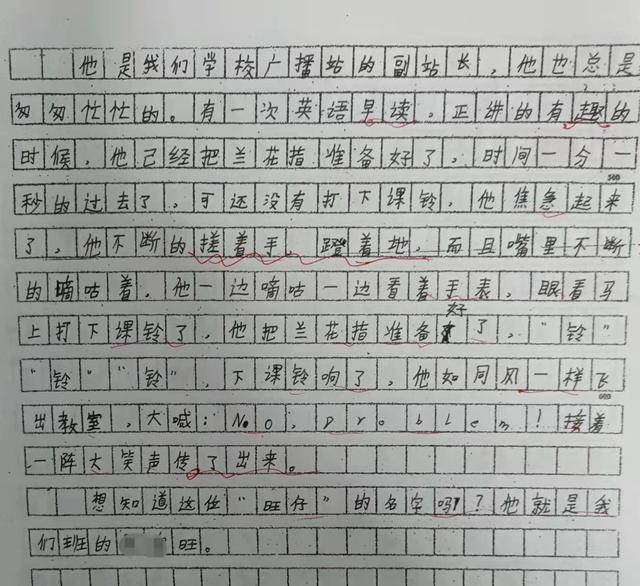 他是我们学校广播站的副站长，他也总是
匆匆忙忙的。有一次英语早读，正讲的有趣的
时候，他已经把兰花指准备好了，时间一分一
500
秒的过去了，可还没有打下课铃，他焦急起来
了，他不断的搓着手，蹬着地，而且嘴里不断
的嘀咕着，他一边嘀咕一边看着手表，眼看马
上打下课铃了，他把兰花指准备好了，“铃”
“铃”“铃”，下课铃响了，他如同风一样飞
600
出教室，大喊：No，problem！接着
一阵大笑声传了出来。
想知道这位“旺仔”的名字吗？他就是我
们班的旺。